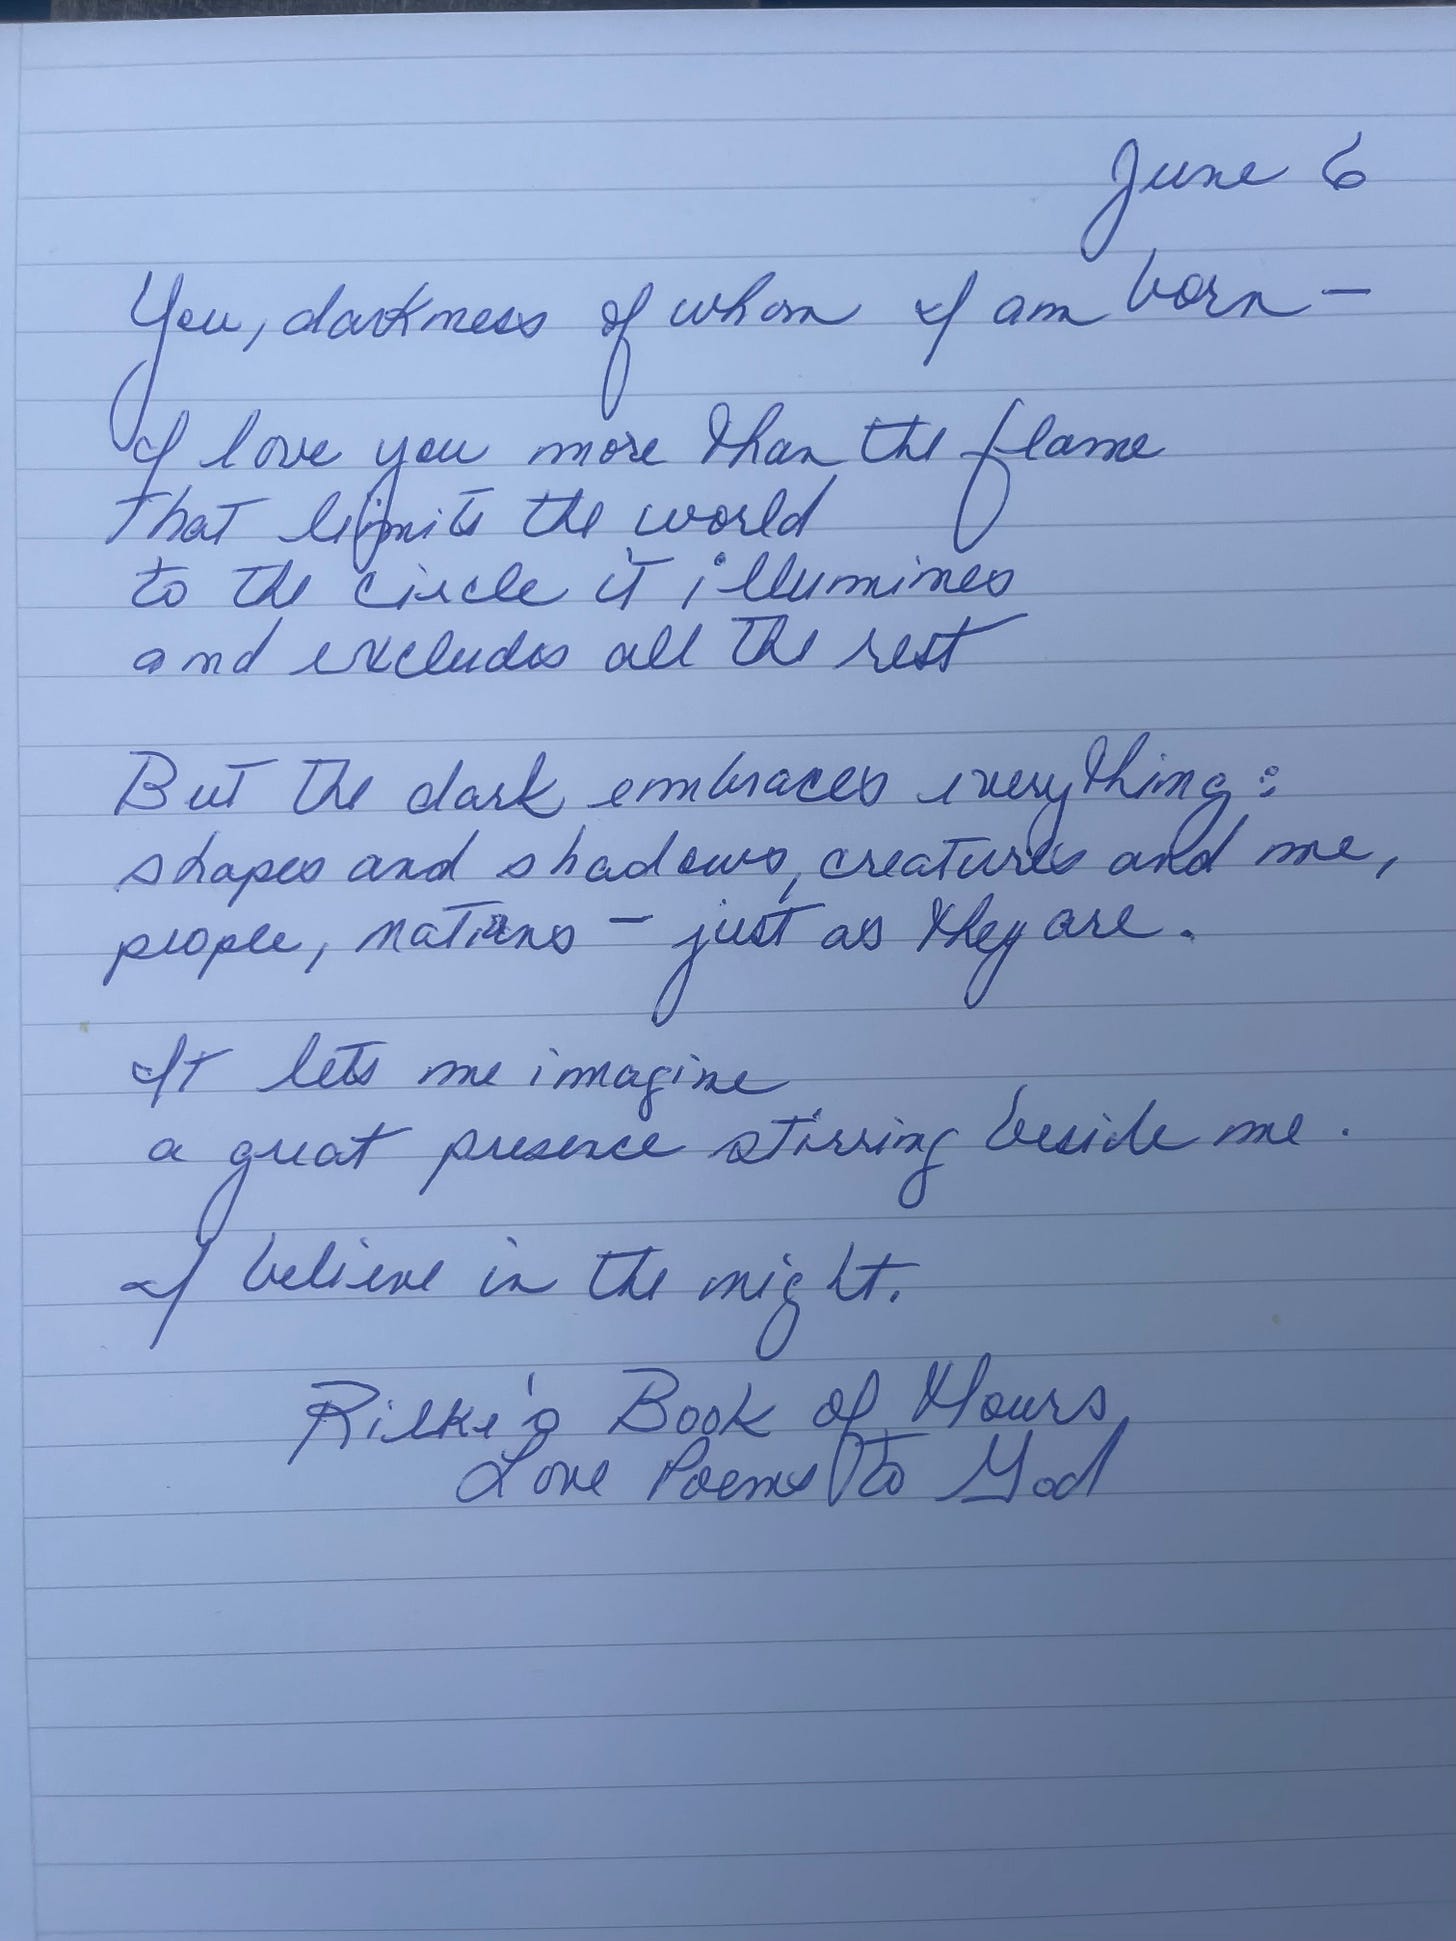 June 6
You, darkness of whom I am born –
I love you more than the flame
that limits the world
to the circle it illumines
and excludes all the rest
But the dark embraces everything:
shapes and shadows, creatures and me,
people, nations – just as they are.
It lets me imagine
a great presence stirring beside me.
I believe in the night.
Rilke's Book of Hours,
Love Poems to God